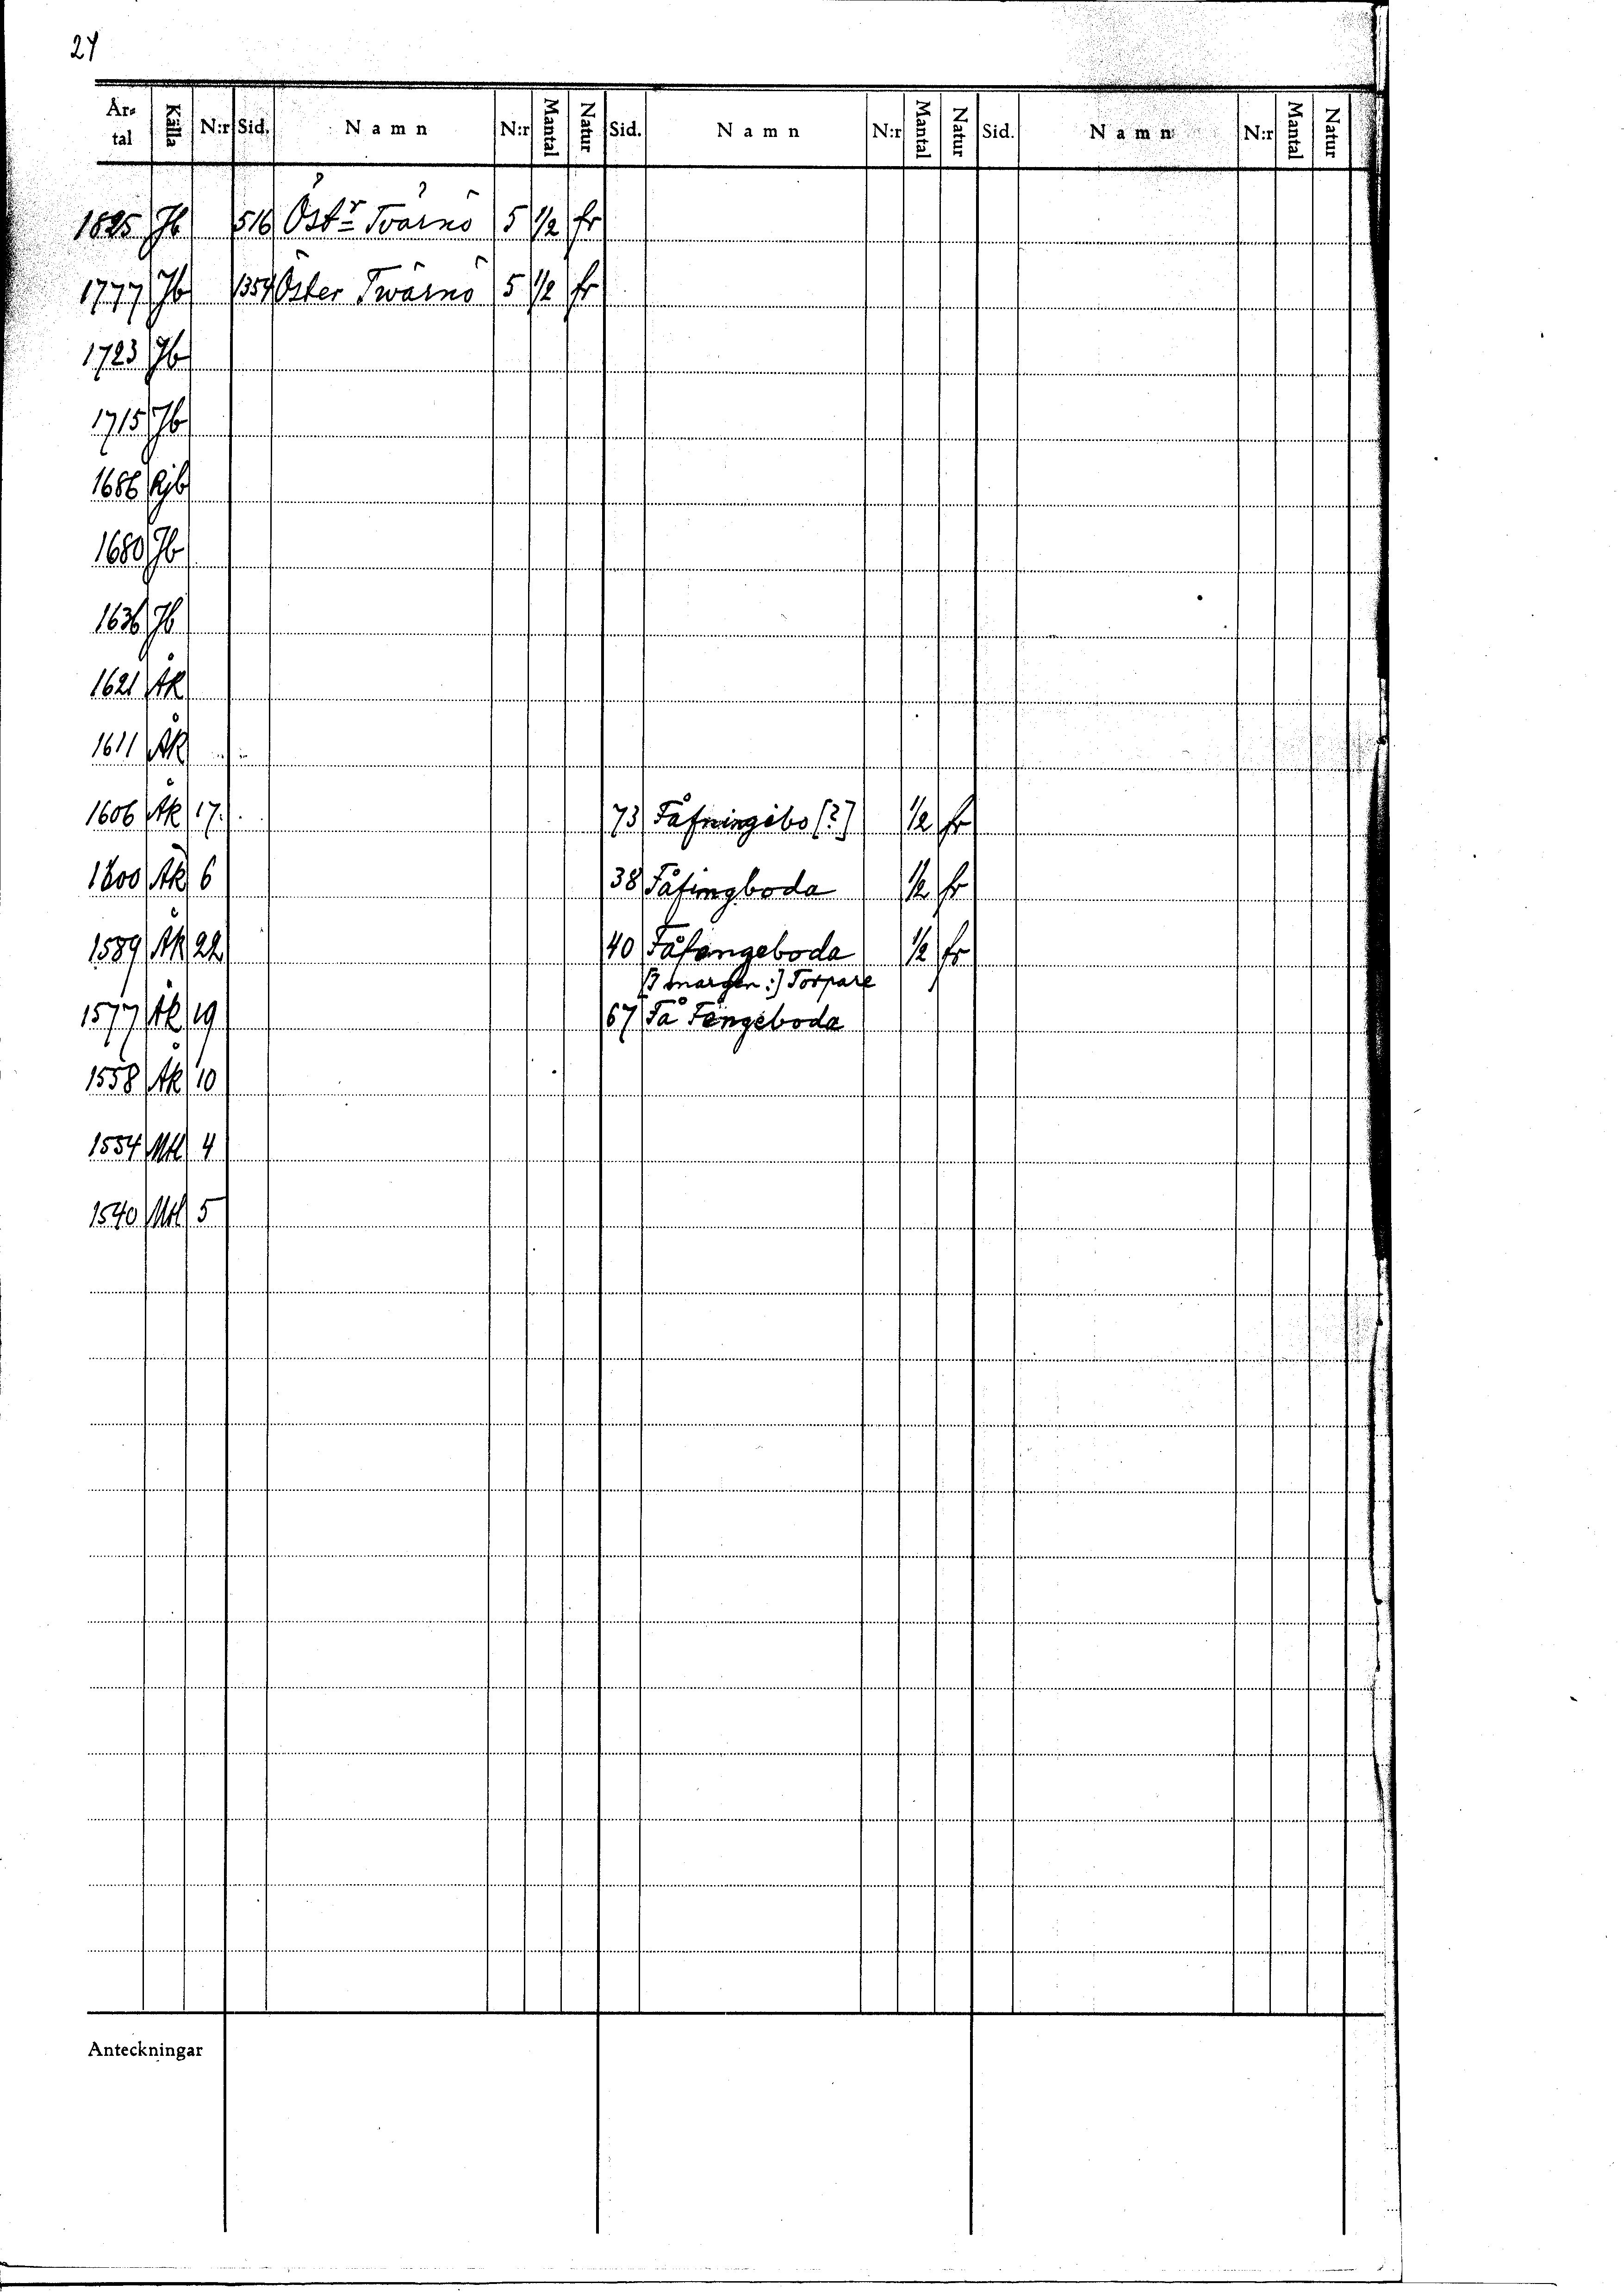 27
År-tal Källa N:r Sid. Namn N:r Mantal Natur Sid. Namn N:r Mantal Natur Sid. Namn N:r Mantal Natur
1825 Jb 516 Östr Tvärnö 5 1/2 fr
1777 Jb 1354 Öster Twärnö 5 1/2 fr
1723 Jb
1715 Jb
1686 Rjb
1680 Jb
1636 Jb
1621 ÄK
1611 ÅK
1606 ÅK 17. 73 Fåfningibo [?] 1/2 fr
1600 ÅK 6 38 Fåfingboda 1/2 fr
1589 ÅK 22 40 Fåfängeboda 1/2 fr
[I margen:] Torpare
1577 ÅK 19 67 Få Fängeboda
1558 ÅK 10
1554 Mtl 4
1540 Mtl 5
Anteckningar